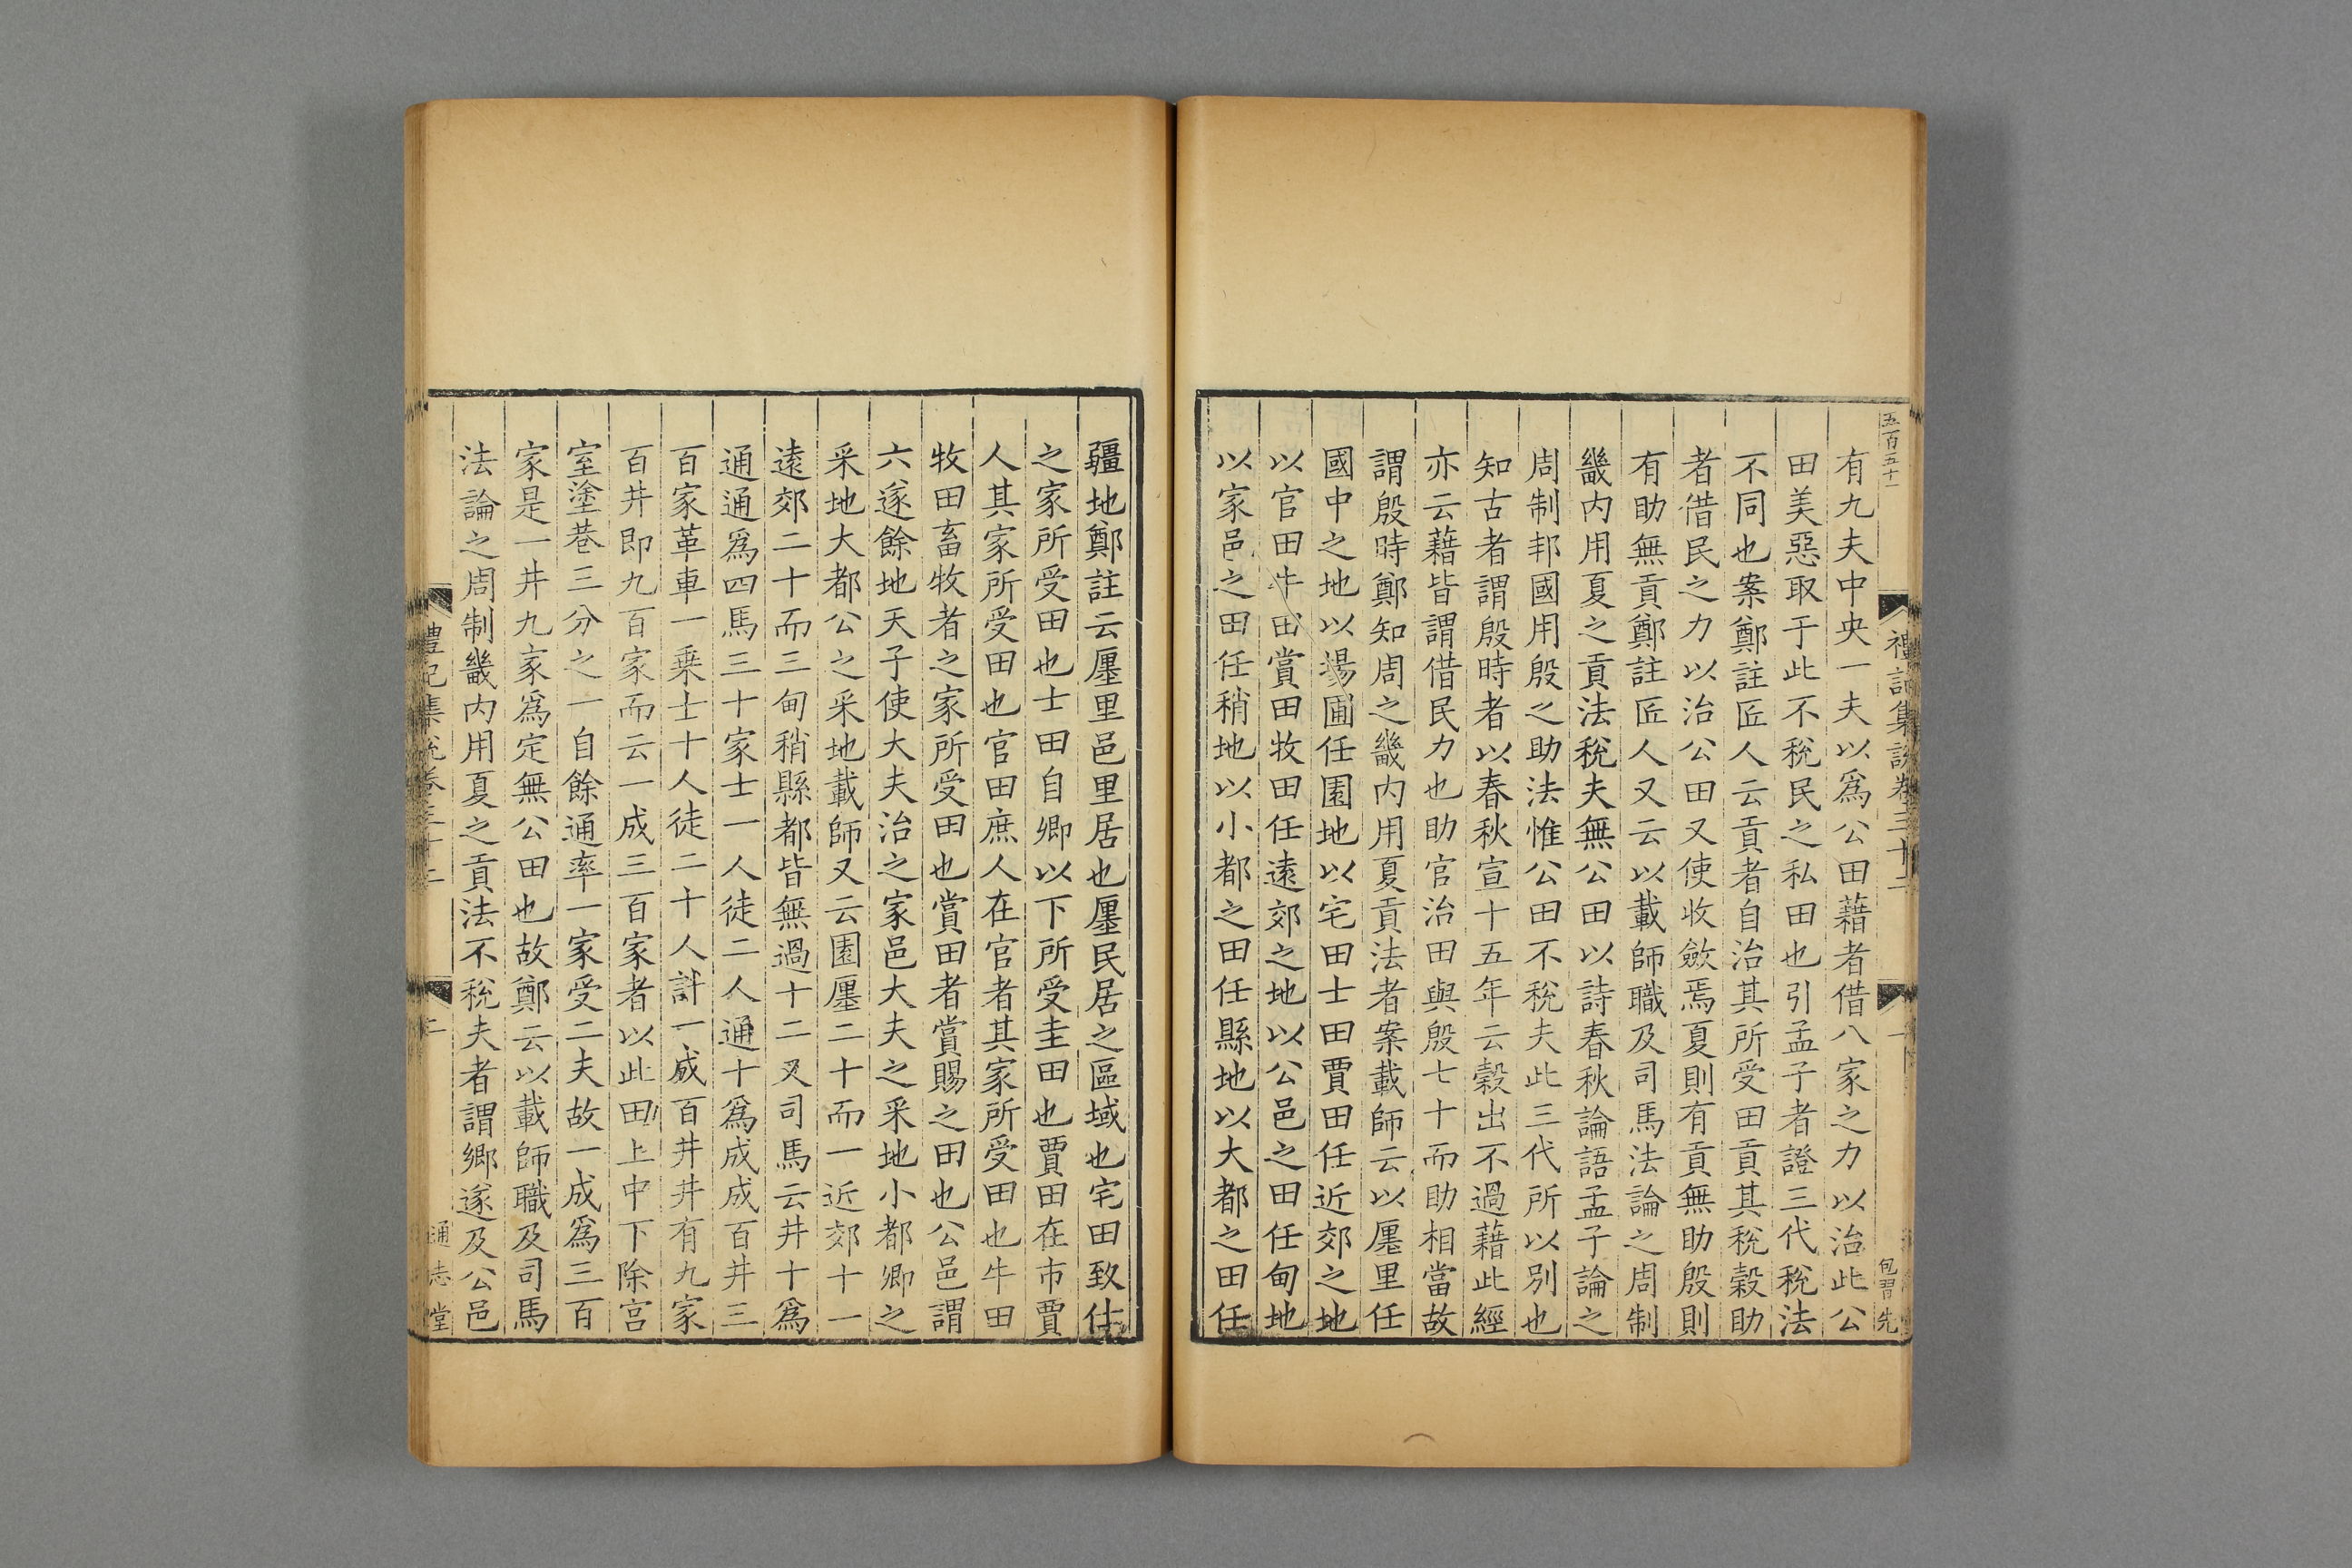 五百五十一
禮記集說卷三十二
一
包習先
有九夫中央一夫以爲公田藉者借八家之力以治此公
田美惡取于此不稅民之私田也引孟子者證三代稅法
不同也案鄭註匠人云貢者自治其所受田貢其稅穀助
者借民之力以治公田又使收斂焉夏則有貢無助殷則
有助無貢鄭註匠人又云以載師職及司馬法論之周制
畿内用夏之貢法稅夫無公田以詩春秋論語孟子論之
周制邦國用殷之助法惟公田不稅夫此三代所以別也
知古者謂殷時者以春秋宣十五年云穀出不過藉此經
亦云藉皆謂借民力也助官治田與殷七十而助相當故
謂殷時鄭知周之畿内用夏貢法者案載師云以廛里任
國中之地以場圃任園地以宅田士田賈田任近郊之地
以官田牛田賞田牧田任遠郊之地以公邑之田任甸地
以家邑之田任稍地以小都之田任縣地以大都之田任
疆地鄭註云廛里邑里居也廛民居之區域也宅田致仕
之家所受田也士田自卿以下所受圭田也賈田在市賈
人其家所受田也官田庶人在官者其家所受田也牛田
牧田畜牧者之家所受田也賞田者賞賜之田也公邑謂
六遂餘地天子使大夫治之家邑大夫之采地小都卿之
采地大都公之采地載師又云園廛二十而一近郊十一
遠郊二十而三甸稍縣都皆無過十二又司馬云井十爲
通通爲四馬三十家士一人徒二人通十爲成成百井三
百家革車一乗士十人徒二十人計一成百井井有九家
百井即九百家而云一成三百家者以此田上中下除宫
室塗巷三分之一自餘通率一家受二夫故一成爲三百
家是一井九家爲定無公田也故鄭云以載師職及司馬
法論之周制畿内用夏之貢法不稅夫者謂鄉遂及公邑
禮記集說卷三十二
二
通志堂